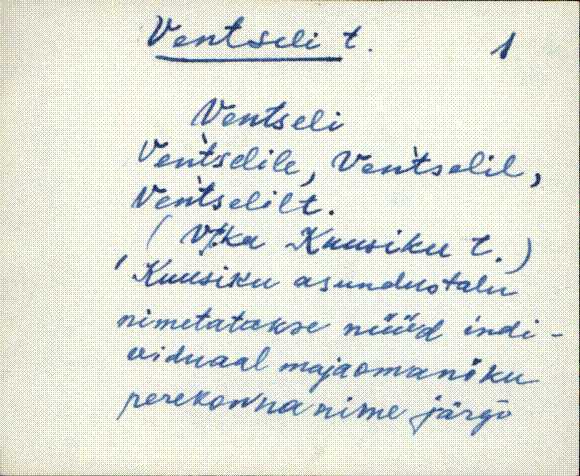 Ventseli t. 1
Ventseli
Ven̆tselile, Ven̆tselil,
Ven̆tselilt.
( Vt. ka Kuusiku t. )
' Kuusiku asundustalu
nimetatakse nüüd indi-
viduaal majaomaniku
perekonna nime järgi